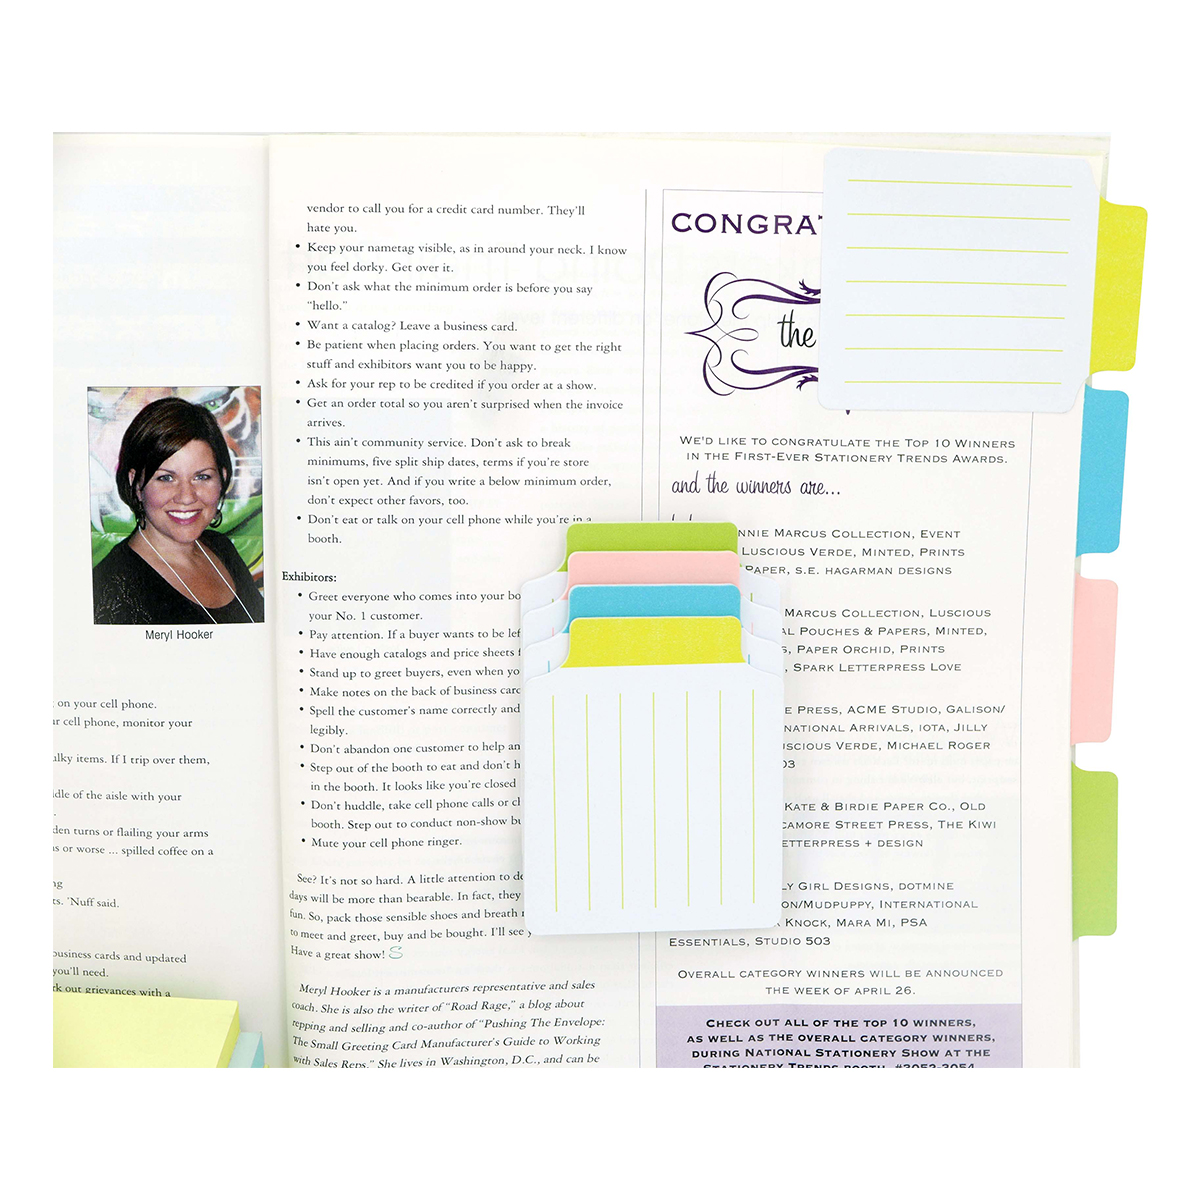 Meryl Hooker
on your cell phone.
cell phone, monitor your
items. If I trip over them,
of the aisle with your
turns or flailing your arms
or worse ... spilled coffee on a
'Nuff said.
business cards and updated
you'll need.
out grievances with a
vendor to call you for a credit card number. They'll
hate you.
• Keep your nametag visible, as in around your neck. I know
you feel dorky. Get over it.
• Don't ask what the minimum order is before you say
"hello."
• Want a catalog? Leave a business card.
• Be patient when placing orders. You want to get the right
stuff and exhibitors want you to be happy.
• Ask for your rep to be credited if you order at a show.
• Get an order total so you aren't surprised when the invoice
arrives.
• This ain't community service. Don't ask to break
minimums, five split ship dates, terms if you're store
isn't open yet. And if you write a below minimum order,
don't expect other favors, too.
• Don't eat or talk on your cell phone while you're in a
booth.
Exhibitors:
• Greet everyone who comes into your
your No. 1 customer.
• Pay attention. If a buyer wants to be
• Have enough catalogs and price sheets
• Stand up to greet buyers, even when
• Make notes on the back of business
• Spell the customer's name correctly and
legibly.
• Don't abandon one customer to help
• Step out of the booth to eat and don't
in the booth. It looks like you're closed
• Don't huddle, take cell phone calls or
booth. Step out to conduct non-show
• Mute your cell phone ringer.
See? It's not so hard. A little attention to
days will be more than bearable. In fact, they
fun. So, pack those sensible shoes and breath
to meet and greet, buy and be bought. I'll see
Have a great show! S
Meryl Hooker is a manufacturers representative and sales
coach. She is also the writer of "Road Rage," a blog about
repping and selling and co-author of "Pushing The Envelope:
The Small Greeting Card Manufacturer's Guide to Working
with Sales Reps." She lives in Washington, D.C., and can be
CONGRA
the
We'd like to congratulate the Top 10 Winners
in the First-Ever Stationery Trends Awards.
and the winners are...
Marcus Collection, Event
Luscious Verde, Minted, Prints
Paper, S.E. Hagarman Designs
Marcus Collection, Luscious
Pouches & Papers, Minted,
Paper Orchid, Prints
, Spark Letterpress Love
Press, ACME Studio, Galison/
Arrivals, iota, Jilly
Verde, Michael Roger
Kate & Birdie Paper Co., Old
Street Press, The Kiwi
+ Design
Girl Designs, dotmine
/Mudpuppy, International
Knock, Mara Mi, PSA
Essentials, Studio 503
Overall category winners will be announced
the week of April 26.
Check out all of the top 10 winners,
as well as the overall category winners,
during National Stationery Show at the
Stationery Trends booth, #3052-3054.